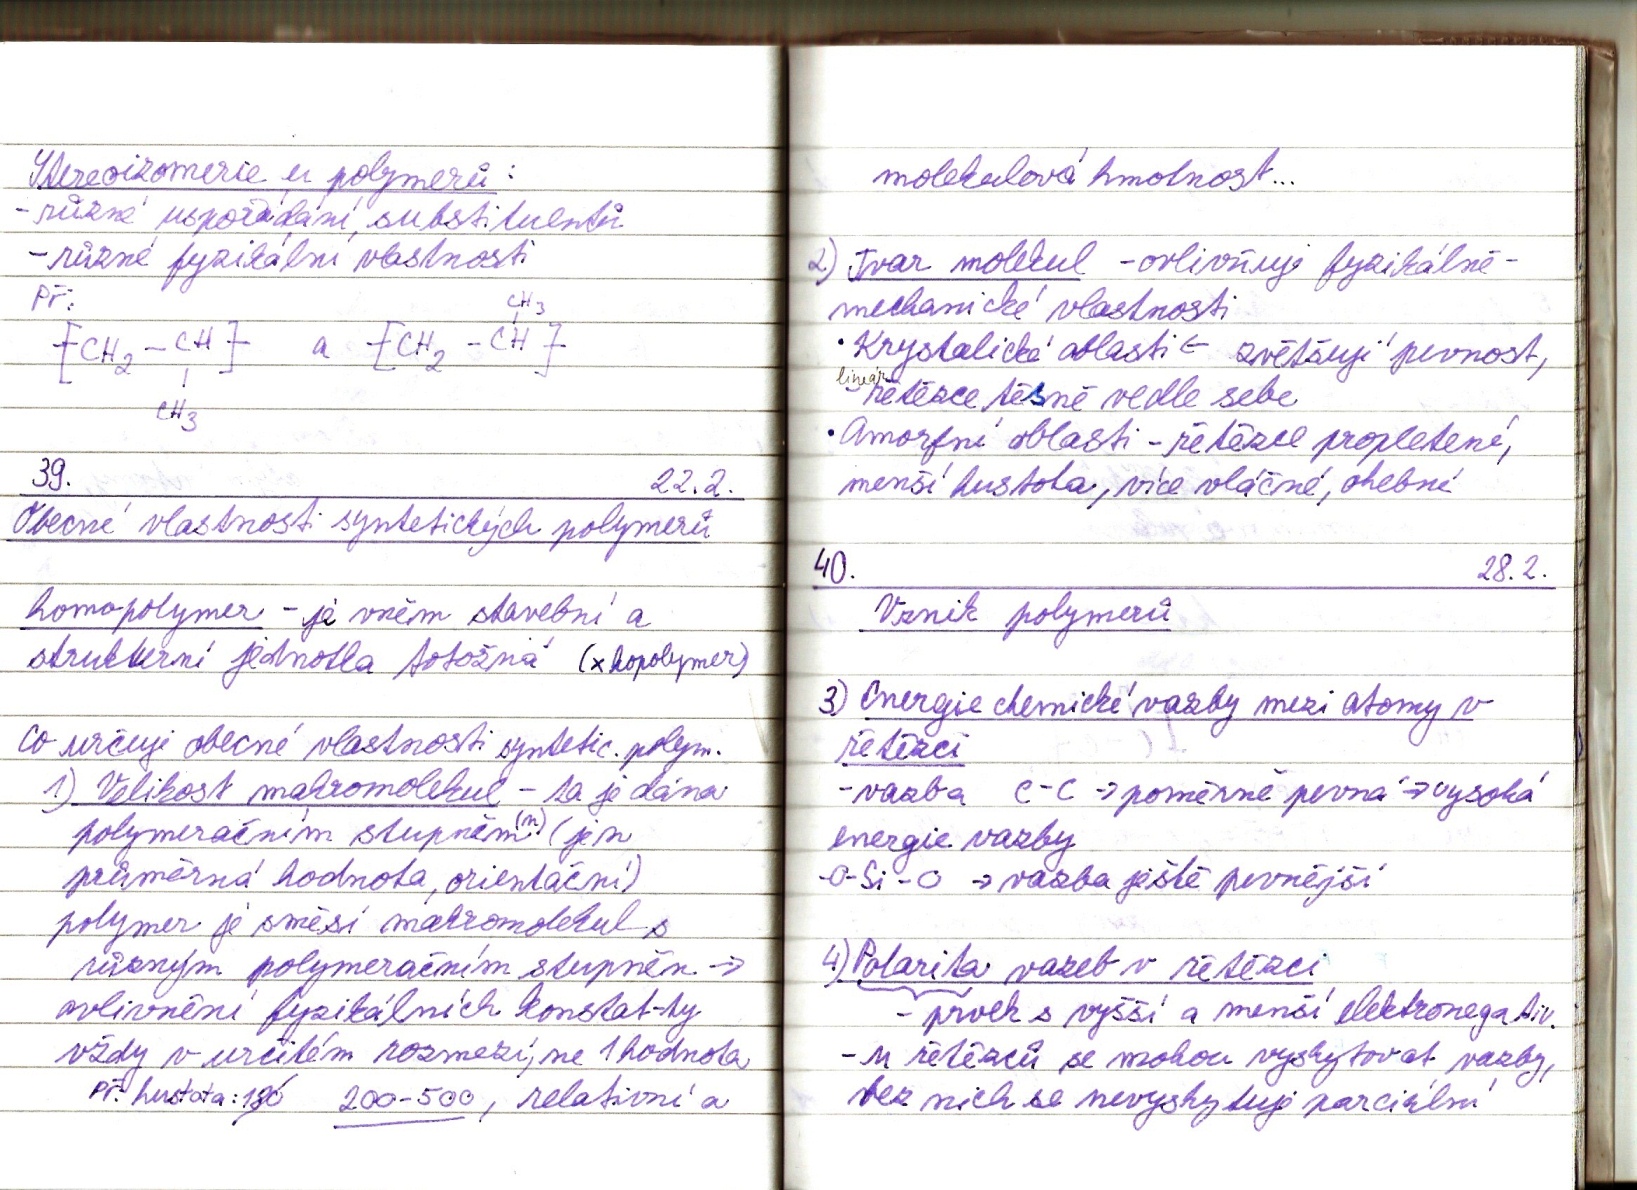 Stereoizomerie u polymerů:
- různé uspořádání substituentů
- různé fyzikální vlastnosti
Př:
CH3
[CH2 – CH] a [CH2 – CH]
CH3
39. 22.2.
Obecné vlastnosti syntetických polymerů
homopolymer - je v něm stavební a
strukturní jednotka totožná (x kopolymer)
Co určuje obecné vlastnosti syntetic. polym.
1) Velikost makromolekul - ta je dána
polymeračním stupněm (n) (je n
průměrná hodnota, orientační)
polymer je směsí makromolekul s
různým polymeračním stupněn →
ovlivnění fyzikálních konstat-ty
vždy v určitém rozmezí, ne 1 hodnota
Př: hustota: 200-500, relativní a
molekulová hmotnost...
2) Tvar molekul - ovlivňuje fyzikálně-
mechanické vlastnosti
• Krystalické oblasti ← zvětšují pevnost,
lineár
řetězce těsně vedle sebe
• Amorfní oblasti - řetězce propletené,
menší hustota, více vláčné, ohebné
40. 28.2.
Vznik polymerů
3) Energie chemické vazby mezi atomy v
řetězci
- vazba C-C → poměrně pevná → vysoká
energie vazby
-O-Si-O → vazba ještě pevnější
4) Polarita vazeb v řetězci
- prvek s vyšší a menší elektronegativ.
- u řetězců se mohou vyskytovat vazby,
bez nich se nevyskytuje parciální